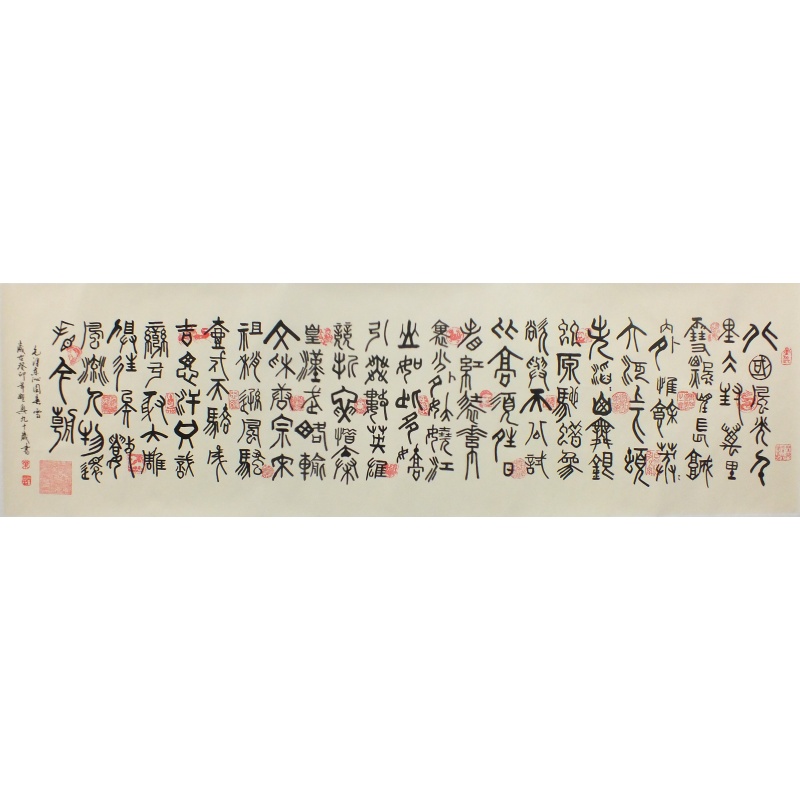 北國風光千
里冰封萬里
雪飄望長城
內外惟餘莽莽
大河上下頓
失滔滔山舞銀
蛇原馳蠟象
欲與天公試
比高須晴日
看紅裝素
裹分外妖嬈江
山如此多嬌
引無數英雄
競折腰惜秦
皇漢武略輸
文采唐宗宋
祖稍遜風騷
一代天驕成
吉思汗只識
彎弓射大雕
俱往矣數
風流人物還
看今朝
毛澤東沁園春雪
歲在癸卯年九十歲書